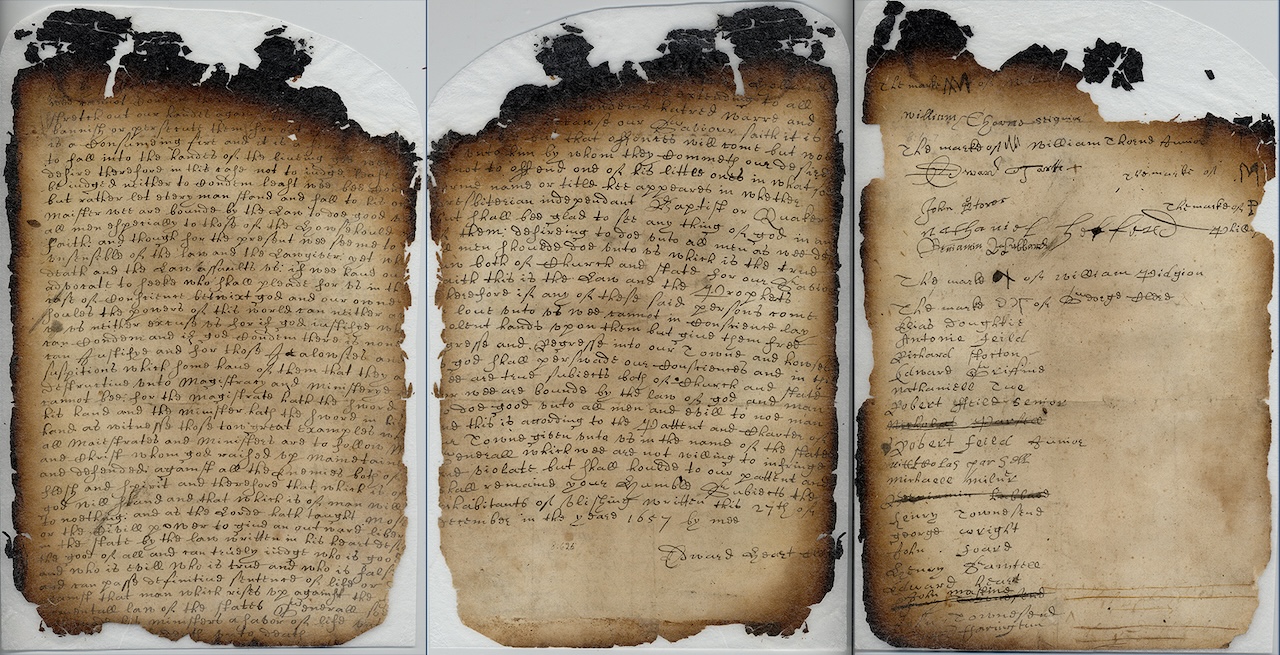 stretch out our handes again
bannish or persecute them for
is a Consuming fire and it is
to fall into the handes of the liveing god
desire therefore in this case not to iudge least
be iudged neither to Condem least wee bee
but rather let every man stand and fall to his
Maister wee are bounde by the Law to doe good
all men especially to those of the
faith and though for the present wee seeme to
unsensible of the law and the Lawgiver yet
death and the Law assault us if wee have
advocate to seeke who shall pleade for us in
case of Conscience betwixt god and our owne
soules the powers of this world can neither
us neither excuse us for if god iustifye
can Condem and if god Condem there is none
can Justifye and for those Jealowsies and
suspitions which some have of them that they
destructive unto Magistracy and
cannot bee for the magistrate hath the sword
his hand and the minister hath the sword in
hand as witnesse those tow great examples
all Maiestrates and Ministers are to follow
and Christ whom god raised up
and defended against all the Enemies both
flesh and spirit and therefore that which is of
god will stand and that which is of man will
to noething and as the Lorde hath taught
or the Civill power to give an outward
the state by the law written in his heart
the good of all and can truely iudge who is good
and who is evill who is true and who is false
and can pass definitive sentence of life or
against that man which rises up against the
law of the states Generall
ministers a savor of life
death
extending to all
hatred Warre and
Saviour saith it is
that offences will come but
him by whom they Commeth our desire
not to offend one of his little ones in what
forme name or title hee appeares in whether
presbiterian independant Baptist or Quaker
but shall bee glad to see any thing of god in
them desireing to doe unto all men as wee
men shoulde doe unto us which is the true
law both of Church and state for our
saith this is the Law and the Prophets
therefore if any of these said persons come
loue unto us wee cannot in Conscience lay
violent hands upon them but give them free
Egresse and Regresse into our Towne and howses
god shall perswade our Consciences and in
wee are true subiects both of Church and state
for wee are bounde by the law of god and man
doe good unto all men and evill to noe man
and this is according to the Pattent and Charter of
our Towne given unto us in the name of the states
Generall which wee are not willing to infringe
and violate but shall houlde to our pattent and
shall remaine your Humble Subiects the
inhabitants of Vlishing written this 27th of
December in the yeare 1657 by mee
Edward Heart
The marke
William Thorne
The marke of William Thorne Junior
Edward Tarne The marke of
John Storer The marke of
Nathaniel Hefferd Phil
Beniamin Hubbard
The marke of William Pidgion
The marke of George Clere
Elias Doughtie
Antonie Feild
Richard Stocton
Edward Griffine
Nathaniell Tue
Robert Feild senior
Robert Feild Junior
Nickolas Parsell
Michaell Milner
Henry Townesend
George Wright
John Foard
Henry Samtell
Edward Heart
John Mastine
Townesend
Farington